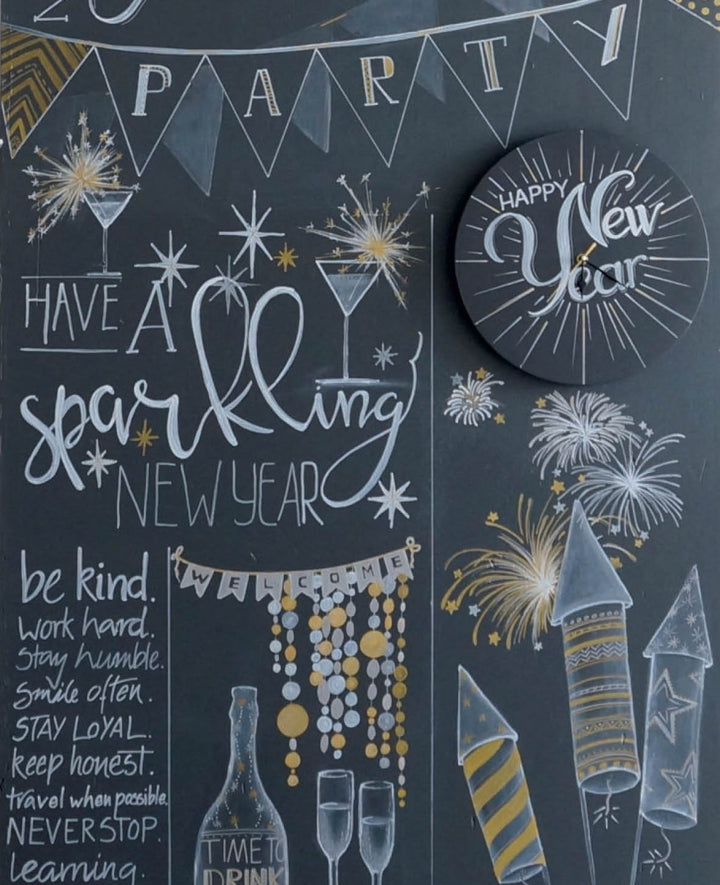 PARTY
HAPPY
New
Year
HAVE A
sparkling
NEW YEAR
be kind.
work hard.
Stay humble.
Smile often.
STAY LOYAL.
keep honest.
travel when possible.
NEVER STOP.
learning.
WELCOME
TIME TO
DRINK